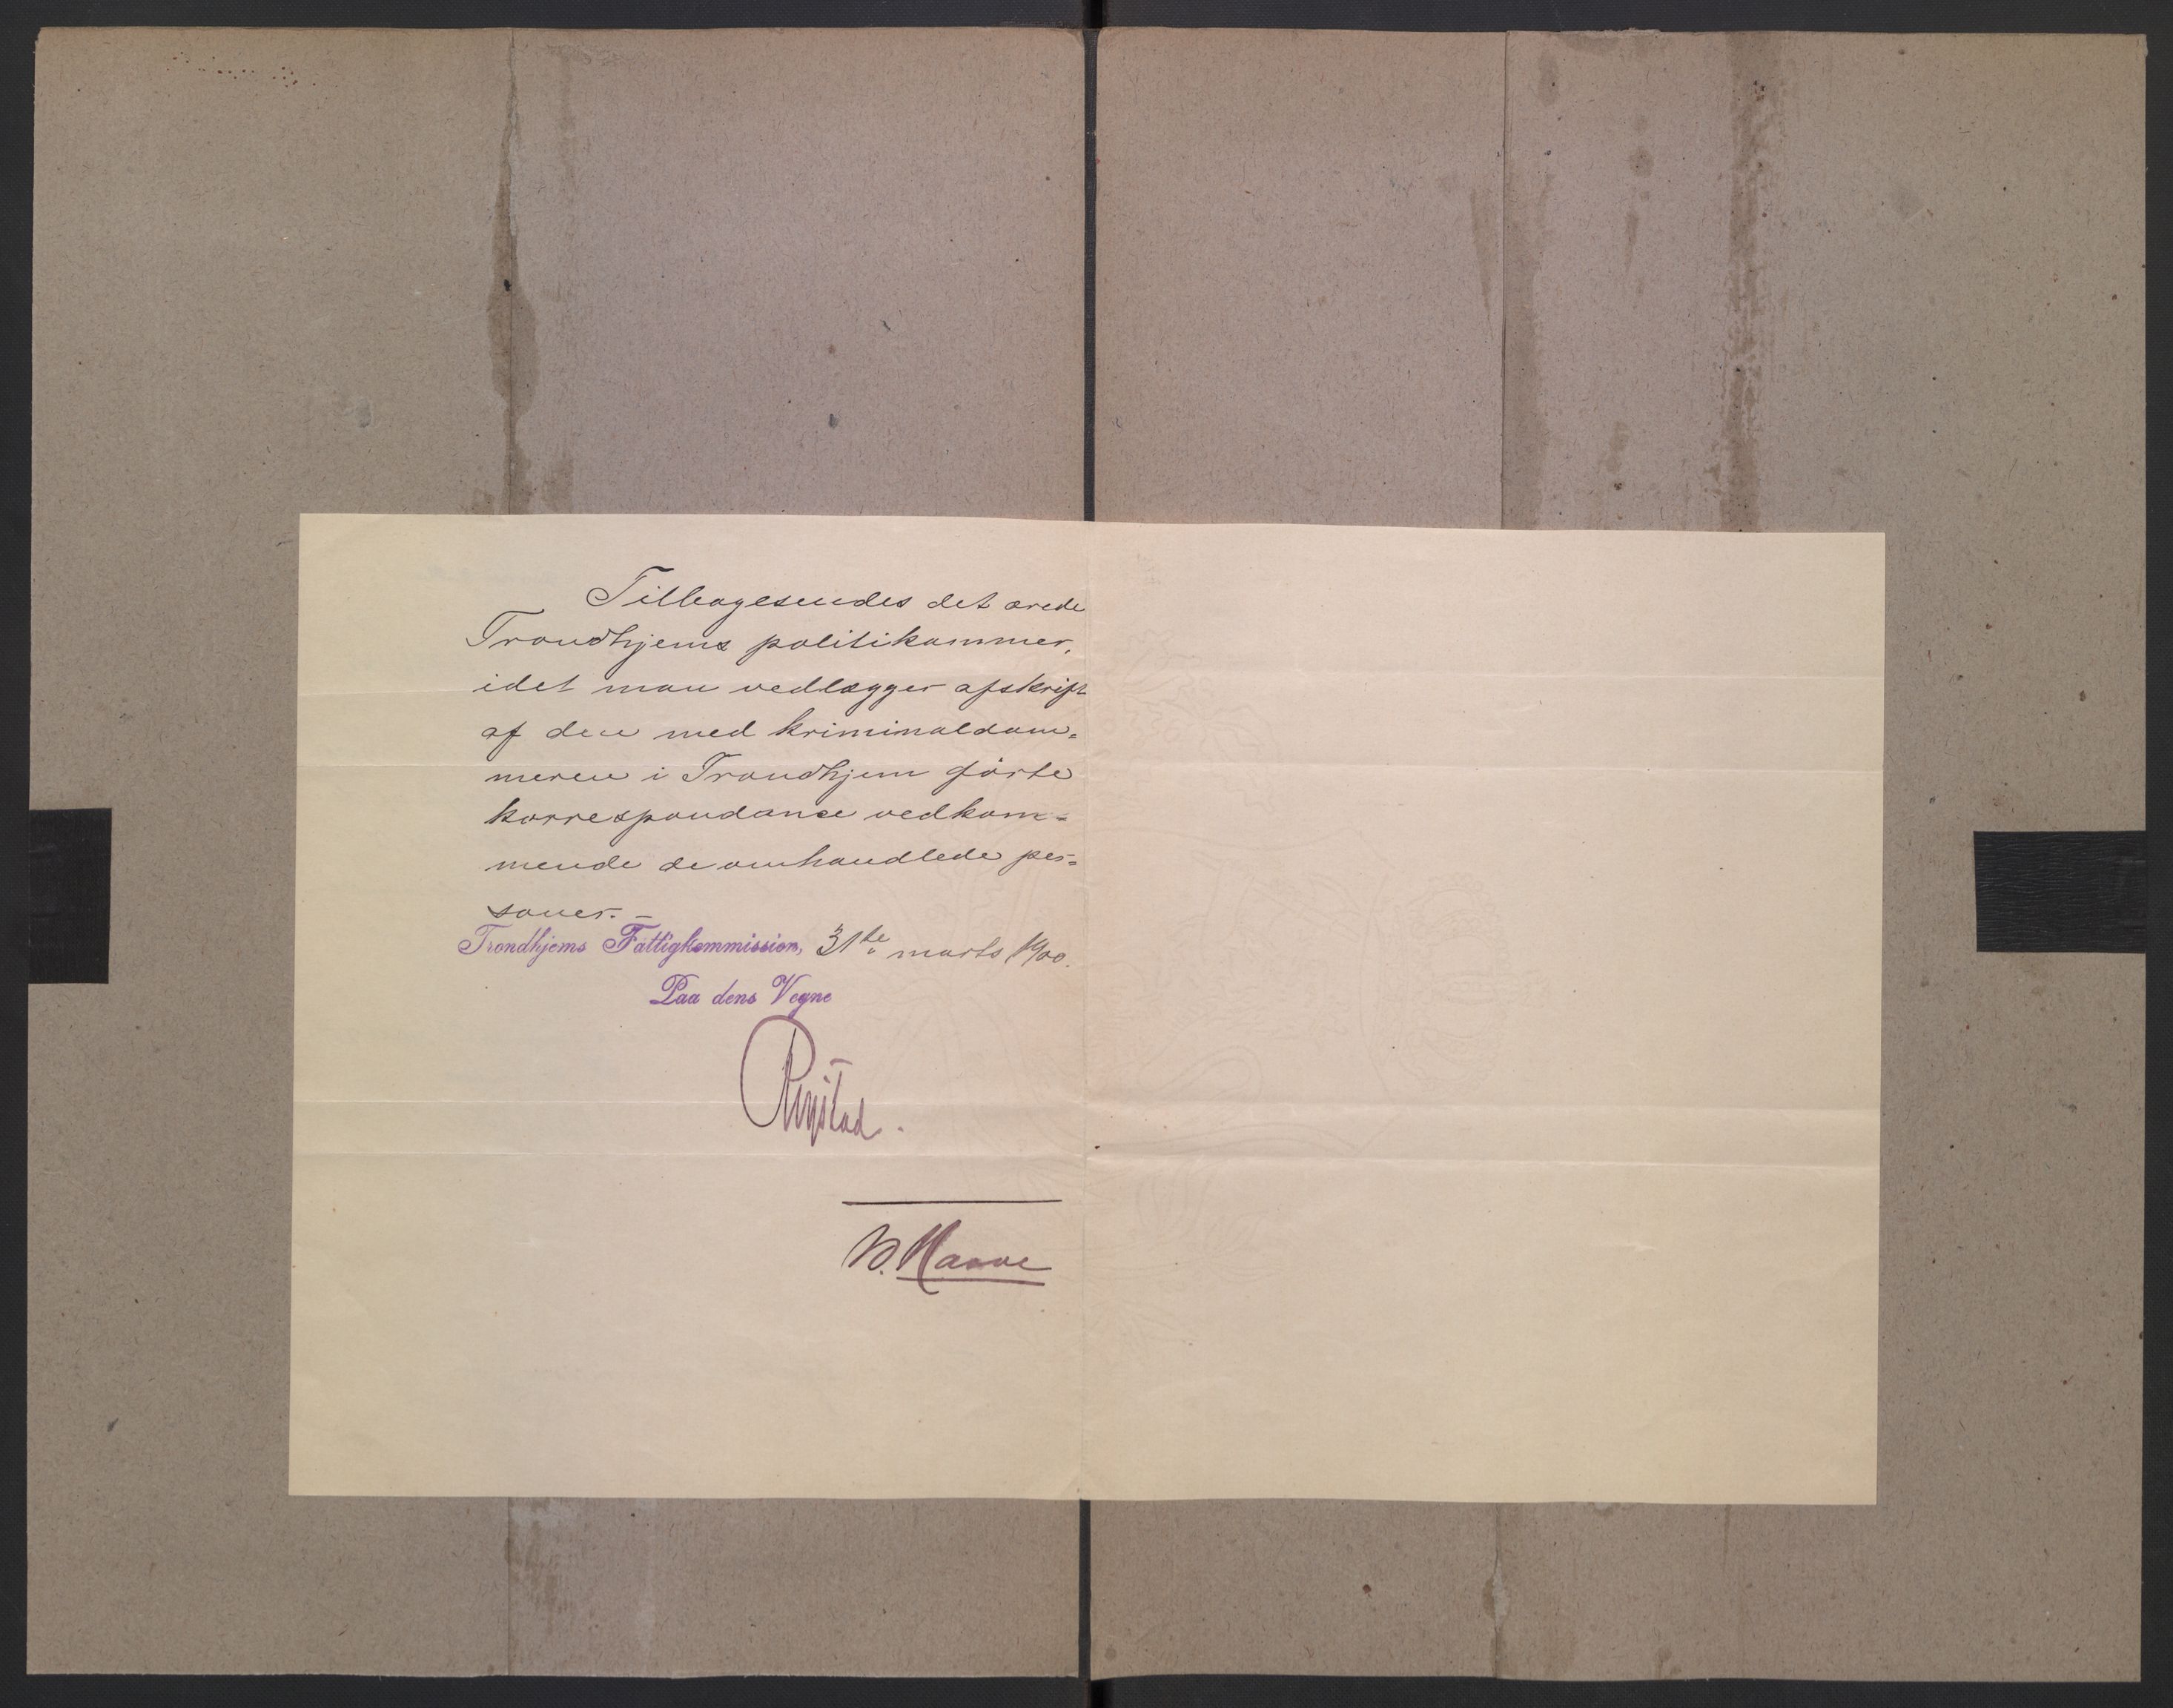 Tilbagesendes det ærede
Trondhjems politikammer,
idet man vedlægger afskrift
af den med kriminaldom=
meren i Trondhjem førte
korrespondance vedkom=
mende de omhandlede per=
soner. —
Trondhjems Fattigkommission, 31te marts 1900.
Paa dens Vegne